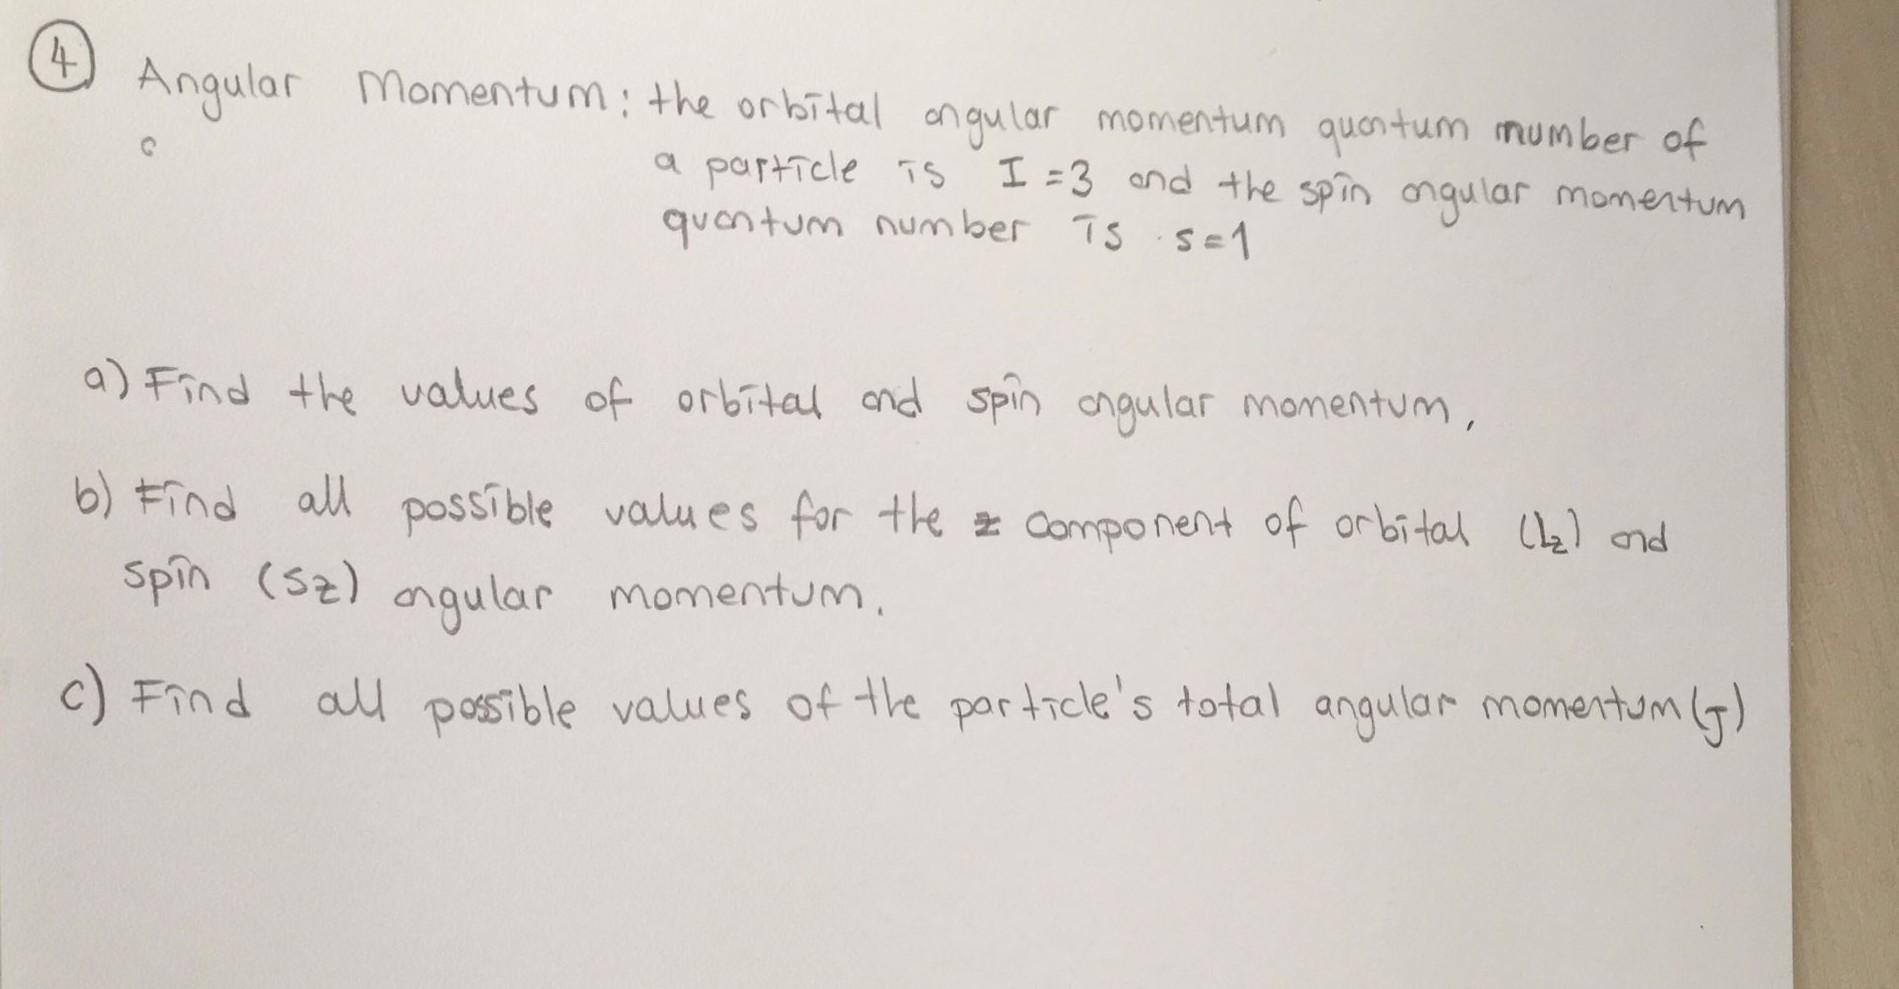 4
Angular Momentum: the orbital angular momentum quantum number of
a particle is I=3 and the spin angular momentum
quantum number is s=1
a) Find the values of orbital and spin angular momentum,
b) Find all possible values for the z component of orbital (Lz) and
spin (Sz) angular momentum.
c) Find all possible values of the particle's total angular momentum (J)